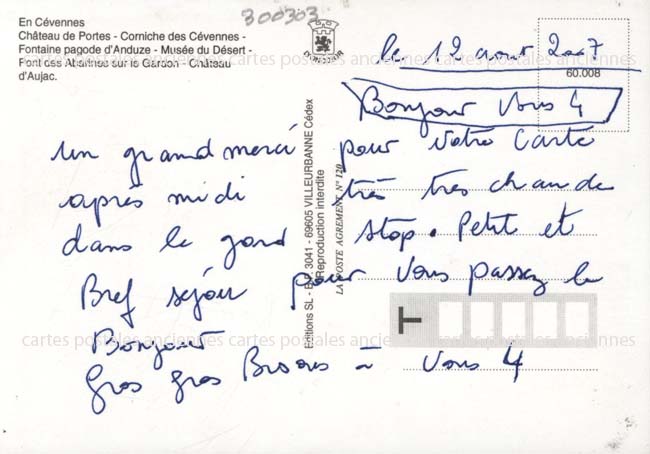 300303
En Cévennes
Château de Portes - Corniche des Cévennes -
Fontaine pagode d'Anduze - Musée du Désert -
Pont des Abarines sur le Gardon - Château
d'Aujac.
le 12 aout 2007
60.008
Bonjour Vous 4
un grand merci pour votre carte
après midi très très chaude
dans le gard stop. Petit et
Bref séjour pour vous passez le
Bonjour
Gros gros Bisous = vous 4
Editions SL - B.P. 3041 - 69605 VILLEURBANNE Cédex
Reproduction interdite
LA POSTE AGREMENT N° 120
cartes postales anciennes cartes postales anciennes cartes postales anciennes
cartes postales anciennes cartes postales anciennes cartes postales anciennes